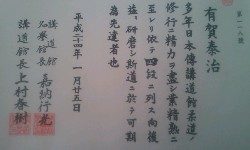 有賀泰治
多年日本傳講道館柔道ノ
修行ニ精力ヲ盡シ業精熟ニ
至レリ依テ四段ニ列ス向後
益研磨シ斯道ニ於テ可期
為先達者也
平成二十四年一月廿五日
講道館
名誉館長 嘉納行光
講道館長 上村春樹